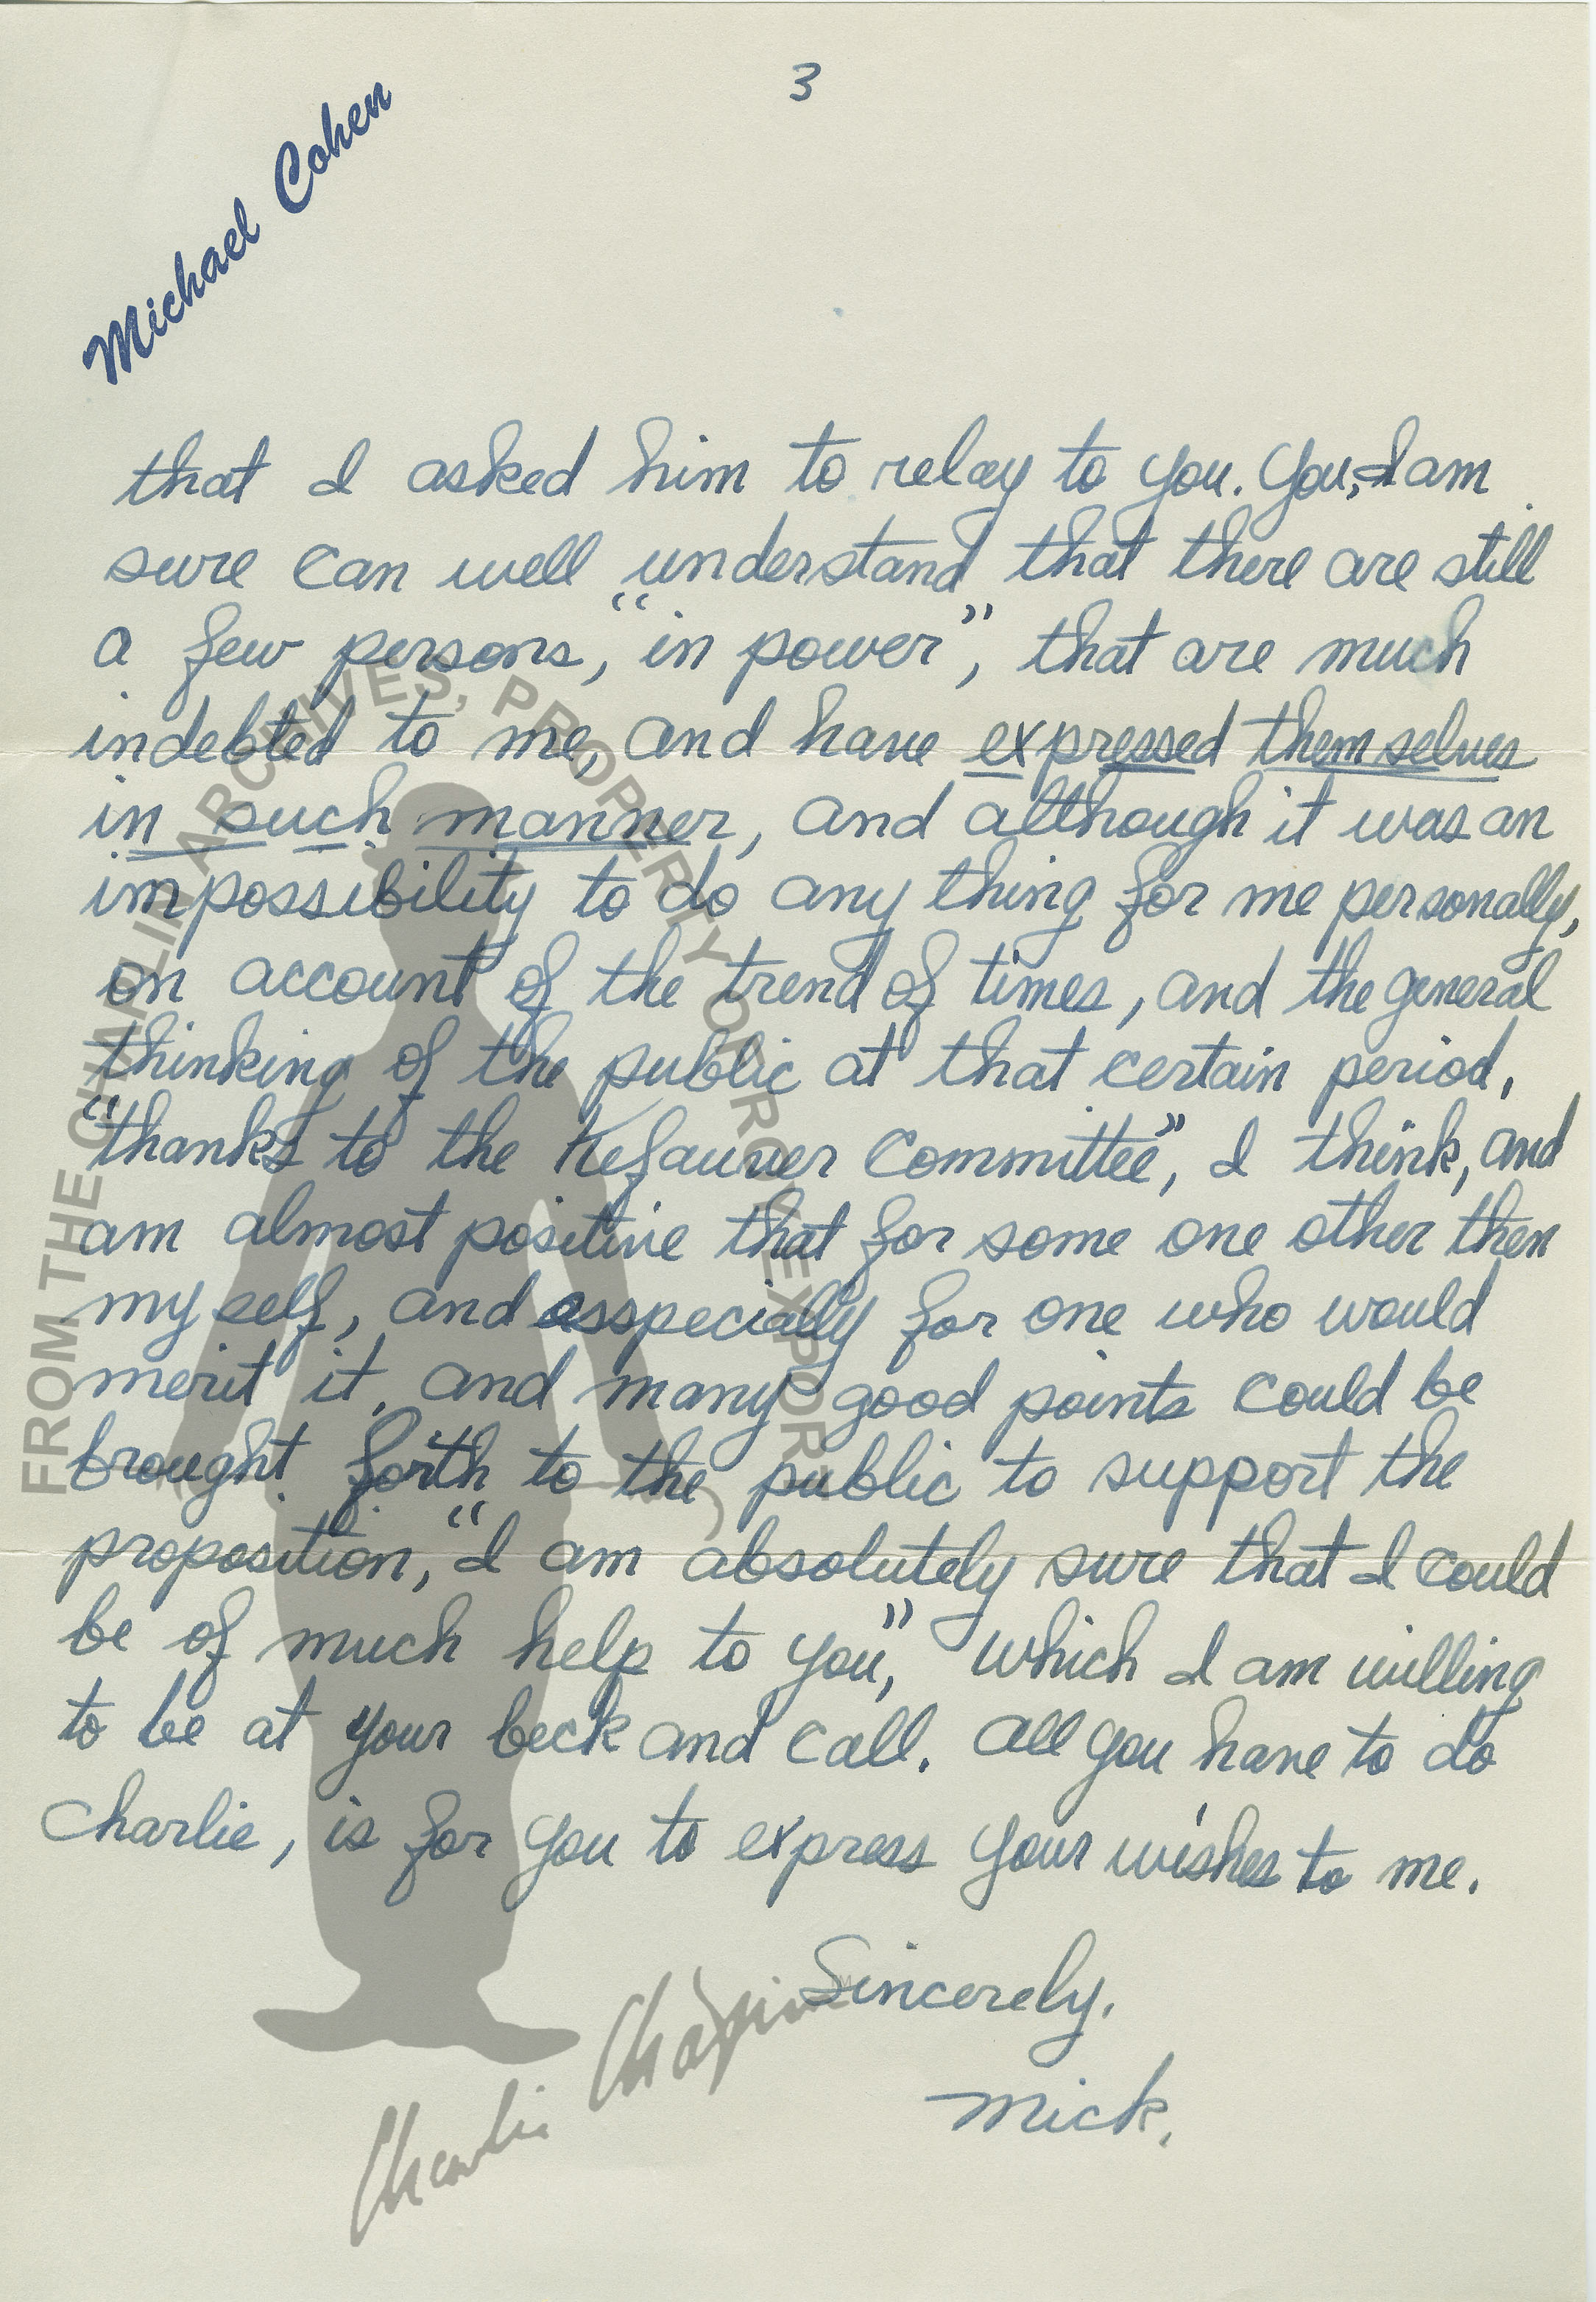 3
Michael Cohen
that I asked him to relay to you. You, I am
sure can well understand that there are still
a few persons, "in power", that are much
indebted to me, and have expressed themselves
in such manner, and although it was an
impossibility to do any thing for me personally,
on account of the trend of times, and the general
thinking of the public at that certain period,
"thanks to the Kefauver Committee", I think, and
am almost positive that for some one other then
my self, and esspecially for one who would
merit it, and many good points could be
brought forth to the public to support the
proposition, "I am absolutely sure that I could
be of much help to you," which I am willing
to be at your beck and call. All you have to do
Charlie, is for you to express your wishes to me.
Sincerely,
Mick.
FROM THE CHAPLIN ARCHIVES, PROPERTY OF ROY EXPORT
Charlie Chaplin